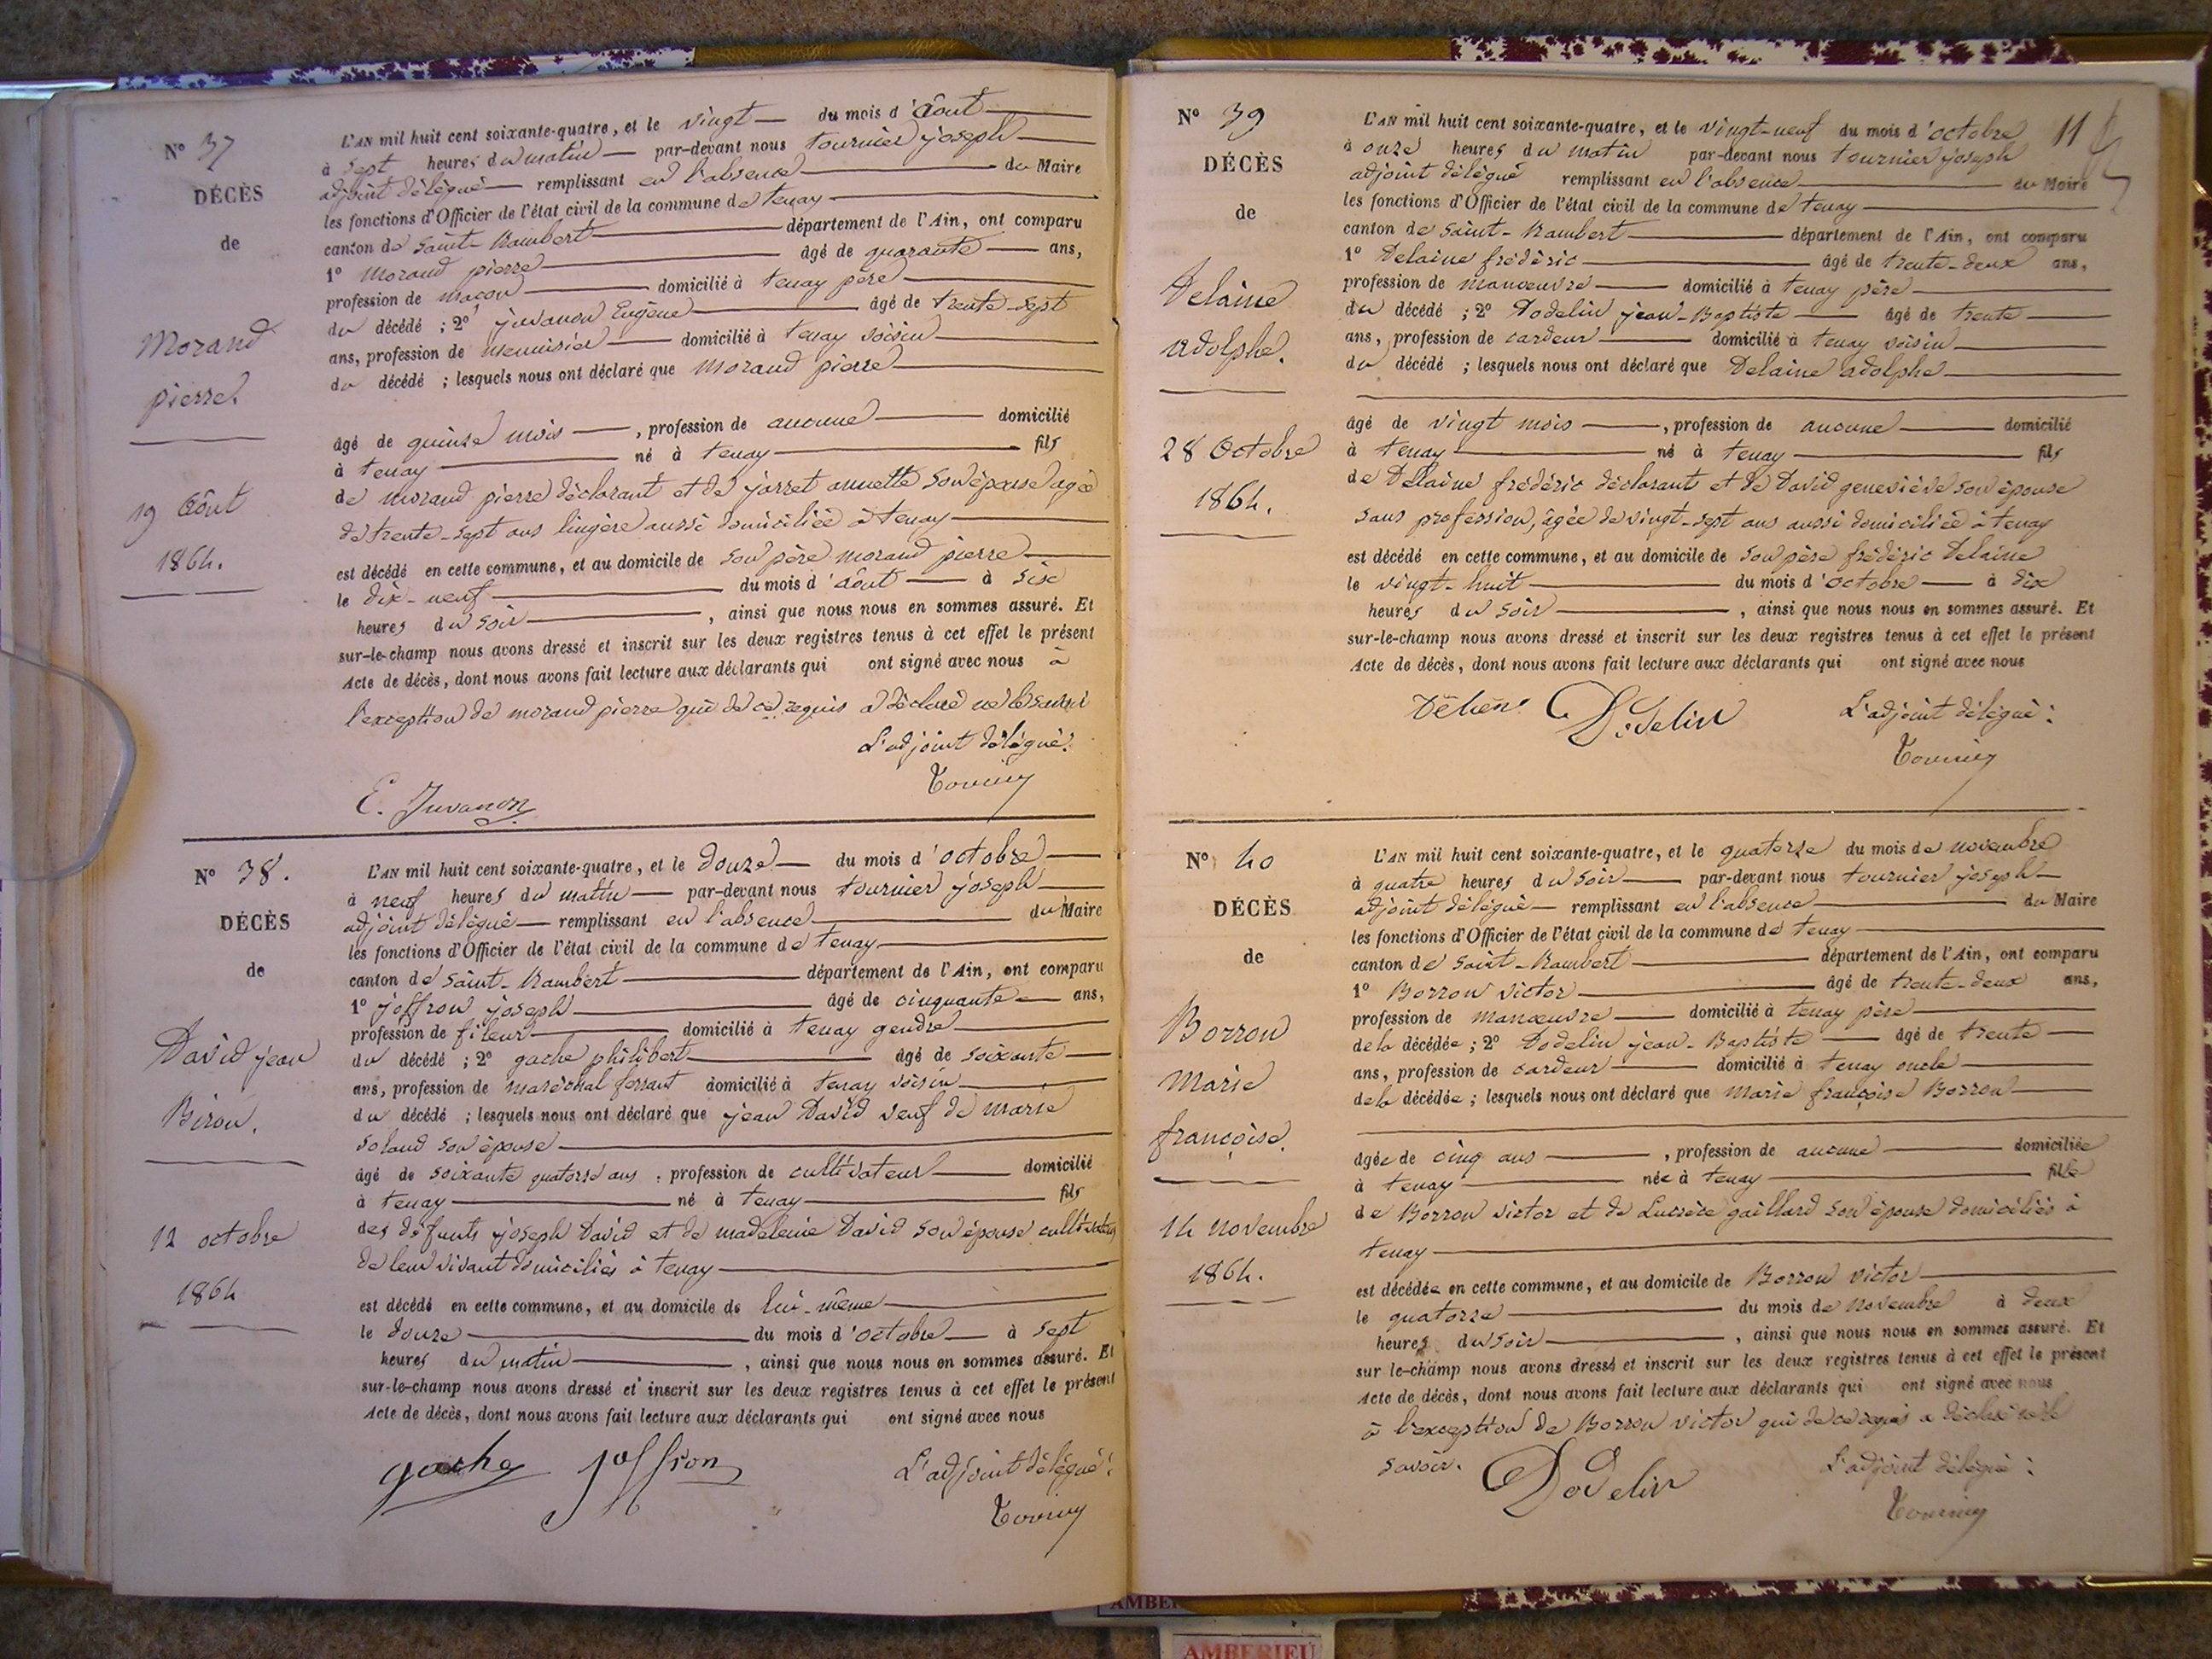 N° 37
DÉCÈS
de
Morand
pierre.
19 Août
1864.
L'AN mil huit cent soixante-quatre, et le vingt — du mois d'Août —
à sept heures du matin — par-devant nous tournier joseph —
adjoint délégué — remplissant en l'absence — du Maire
les fonctions d'Officier de l'état civil de la commune de tenay —
canton de Saint-Rambert — département de l'Ain, ont comparu
1° Morand pierre — âgé de quarante — ans,
profession de maçon — domicilié à tenay père —
du décédé ; 2° juvanon Eugène — âgé de trente-sept
ans, profession de menuisier — domicilié à tenay voisin —
du décédé ; lesquels nous ont déclaré que Morand pierre —
âgé de quinze mois —, profession de aucune — domicilié
à tenay — né à tenay — fils
de morand pierre déclarant et de jarret annette son épouse agée
de trente-sept ans lingère aussi domiciliée à tenay —
est décédé en cette commune, et au domicile de son père morand pierre —
le dix-neuf — du mois d'Août — à sise
heures du soir —, ainsi que nous nous en sommes assuré. Et
sur-le-champ nous avons dressé et inscrit sur les deux registres tenus à cet effet le présent
Acte de décès, dont nous avons fait lecture aux déclarants qui ont signé avec nous à
l'exception de morand pierre qui de ce requis a déclaré ne le savoir
L'adjoint délégué :
E. Juvanon
N° 38.
DÉCÈS
de
David jean
Biron.
12 octobre
1864
L'AN mil huit cent soixante-quatre, et le douze — du mois d'octobre —
à neuf heures du matin — par-devant nous tournier joseph —
adjoint délégué — remplissant en l'absence — du Maire
les fonctions d'Officier de l'état civil de la commune de tenay —
canton de Saint-Rambert — département de l'Ain, ont comparu
1° joffron joseph — âgé de cinquante — ans,
profession de fileur — domicilié à tenay gendre —
du décédé ; 2° gache philibert — âgé de soixante —
ans, profession de maréchal ferrant domicilié à tenay voisin —
du décédé ; lesquels nous ont déclaré que jean David veuf de marie
soland son épouse —
âgé de soixante quatorze ans, profession de cultivateur — domicilié
à tenay — né à tenay — fils
des défunts joseph David et de madeleine David son épouse cultivateurs
de leur vivant domiciliés à tenay —
est décédé en cette commune, et au domicile de lui-même —
le douze — du mois d'octobre — à sept
heures du matin —, ainsi que nous nous en sommes assuré. Et
sur-le-champ nous avons dressé et inscrit sur les deux registres tenus à cet effet le présent
Acte de décès, dont nous avons fait lecture aux déclarants qui ont signé avec nous
gache joffron L'adjoint délégué :
N° 39
DÉCÈS
de
Delaine
adolphe.
28 Octobre
1864.
11
L'AN mil huit cent soixante-quatre, et le vingt-neuf du mois d'octobre
à onze heures du matin par-devant nous tournier joseph
adjoint délégué remplissant en l'absence — du Maire
les fonctions d'Officier de l'état civil de la commune de tenay —
canton de Saint-Rambert — département de l'Ain, ont comparu
1° Delaine frédéric — âgé de trente-deux ans,
profession de manœuvre — domicilié à tenay père —
du décédé ; 2° Dodelin jean-Baptiste — âgé de trente —
ans, profession de cardeur — domicilié à tenay voisin —
du décédé ; lesquels nous ont déclaré que Delaine adolphe —
âgé de vingt mois —, profession de aucune — domicilié
à tenay — né à tenay — fils
de Delaine frédéric déclarant et de David geneviève son épouse
sans profession, âgée de vingt-sept ans aussi domiciliée à tenay
est décédé en cette commune, et au domicile de son père frédéric Delaine
le vingt-huit — du mois d'octobre — à dix
heures du soir —, ainsi que nous nous en sommes assuré. Et
sur-le-champ nous avons dressé et inscrit sur les deux registres tenus à cet effet le présent
Acte de décès, dont nous avons fait lecture aux déclarants qui ont signé avec nous
Dodelin L'adjoint délégué :
N° 40
DÉCÈS
de
Borron
Marie
françoise.
14 novembre
1864.
L'AN mil huit cent soixante-quatre, et le quatorze du mois de novembre
à quatre heures du soir — par-devant nous tournier joseph —
adjoint délégué — remplissant en l'absence — du Maire
les fonctions d'Officier de l'état civil de la commune de tenay —
canton de Saint-Rambert — département de l'Ain, ont comparu
1° Borron victor — âgé de trente-deux ans,
profession de manœuvre — domicilié à tenay père —
de la décédée ; 2° Dodelin jean-Baptiste — âgé de trente —
ans, profession de cardeur — domicilié à tenay oncle —
de la décédée ; lesquels nous ont déclaré que Marie françoise Borron —
âgée de cinq ans —, profession de aucune — domiciliée
à tenay — née à tenay — fille
de Borron victor et de Lucrèce gaillard son épouse domiciliés à
tenay —
est décédée en cette commune, et au domicile de Borron victor —
le quatorze — du mois de novembre à deux
heures du soir —, ainsi que nous nous en sommes assuré. Et
sur le-champ nous avons dressé et inscrit sur les deux registres tenus à cet effet le présent
Acte de décès, dont nous avons fait lecture aux déclarants qui ont signé avec nous
à l'exception de Borron victor qui de ce requis a déclaré ne le
savoir. Dodelin L'adjoint délégué :
AMBERIEU